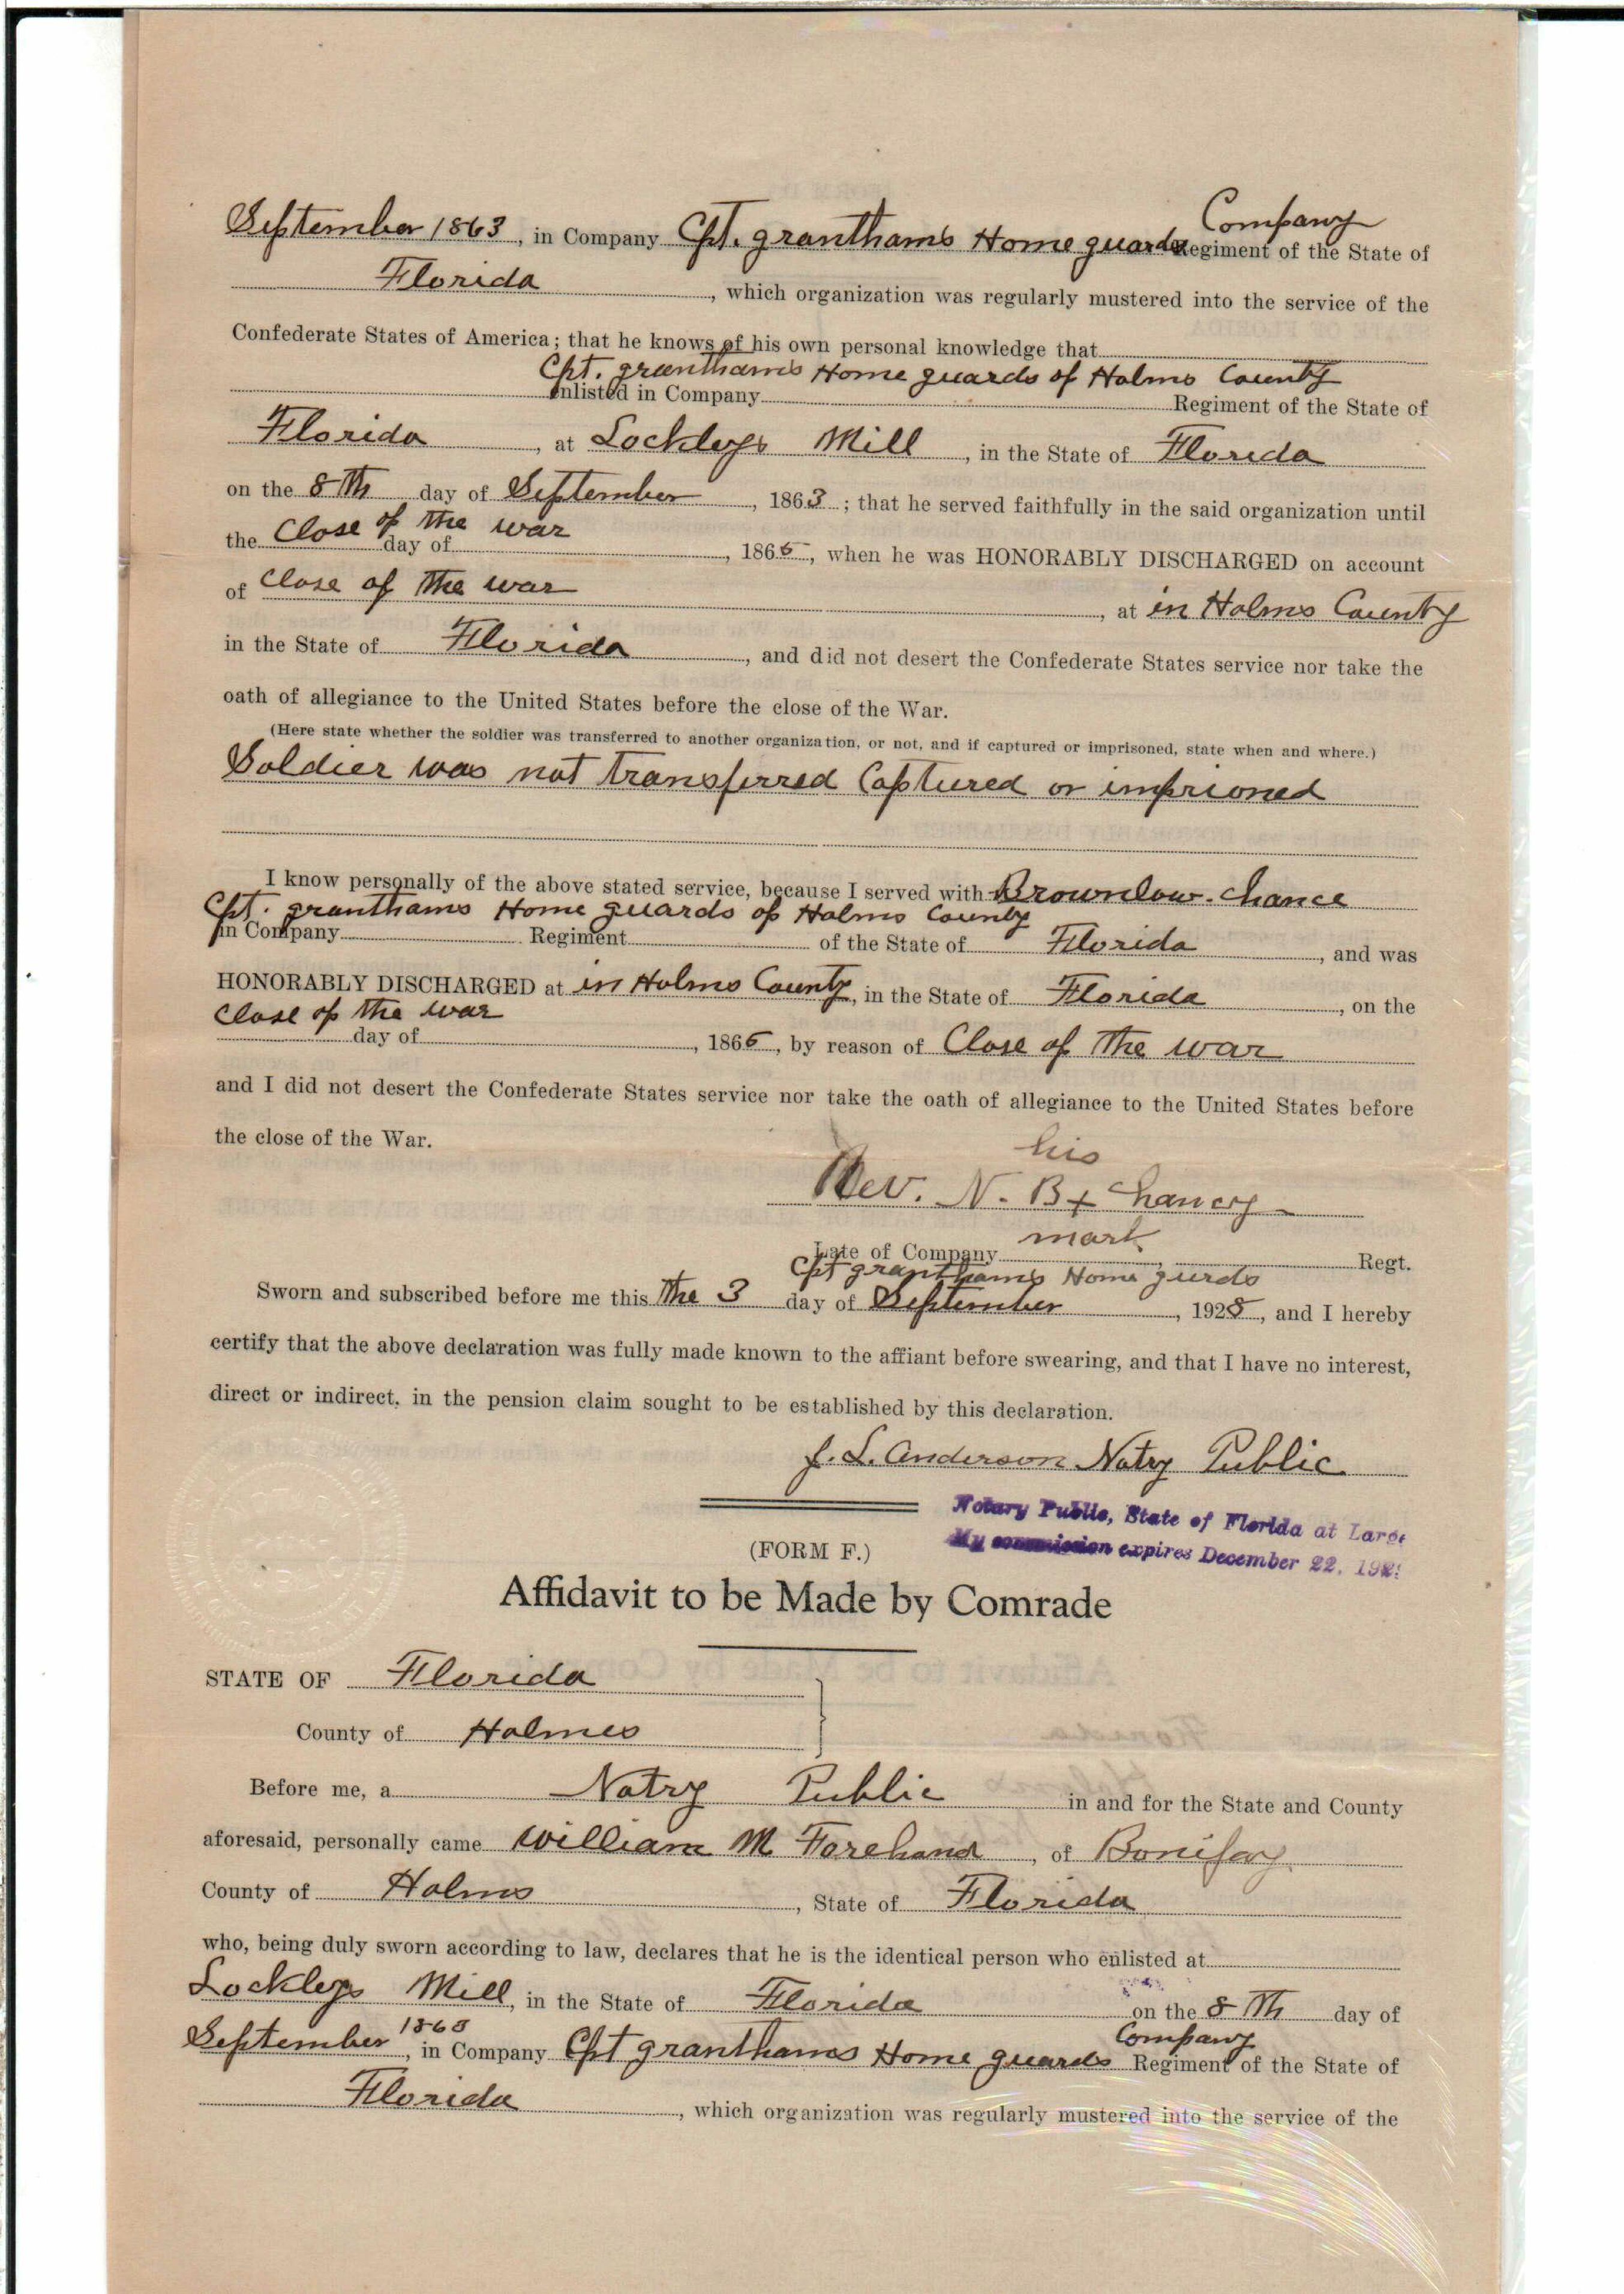 Company
September 1863, in Company Cpt. granthams Home guards Regiment of the State of
Florida, which organization was regularly mustered into the service of the
Confederate States of America; that he knows of his own personal knowledge that
Cpt. granthams Home guards of Holms County
enlisted in Company Regiment of the State of
Florida, at Lockleys Mill, in the State of Florida
on the 8th day of September, 1863; that he served faithfully in the said organization until
the Close of the war day of, 1865, when he was HONORABLY DISCHARGED on account
of Close of the war, at in Holms County
in the State of Florida, and did not desert the Confederate States service nor take the
oath of allegiance to the United States before the close of the War.
(Here state whether the soldier was transferred to another organization, or not, and if captured or imprisoned, state when and where.)
Soldier was not transferred Captured or imprioned
I know personally of the above stated service, because I served with Brownlow. Chance
Cpt. granthams Home guards of Holms County
in Company Regiment of the State of Florida, and was
HONORABLY DISCHARGED at in Holms County, in the State of Florida, on the
Close of the war
day of, 1865, by reason of Close of the war
and I did not desert the Confederate States service nor take the oath of allegiance to the United States before
the close of the War.
his
Rev. N. B + Chancy
mark
Late of Company Regt.
Cpt granthams Home gurds
Sworn and subscribed before me this the 3 day of September, 1928, and I hereby
certify that the above declaration was fully made known to the affiant before swearing, and that I have no interest,
direct or indirect, in the pension claim sought to be established by this declaration.
J. L. Anderson Notry Public
Notary Public, State of Florida at Large
My commission expires December 22, 192
(FORM F.)
Affidavit to be Made by Comrade
STATE OF Florida
County of Holmes
Before me, a Notry Public in and for the State and County
aforesaid, personally came William M Forehand, of Bonifay
County of Holms, State of Florida
who, being duly sworn according to law, declares that he is the identical person who enlisted at
Lockleys Mill, in the State of Florida on the 8th day of
1863 Company
September, in Company Cpt granthams Home guards Regiment of the State of
Florida, which organization was regularly mustered into the service of the